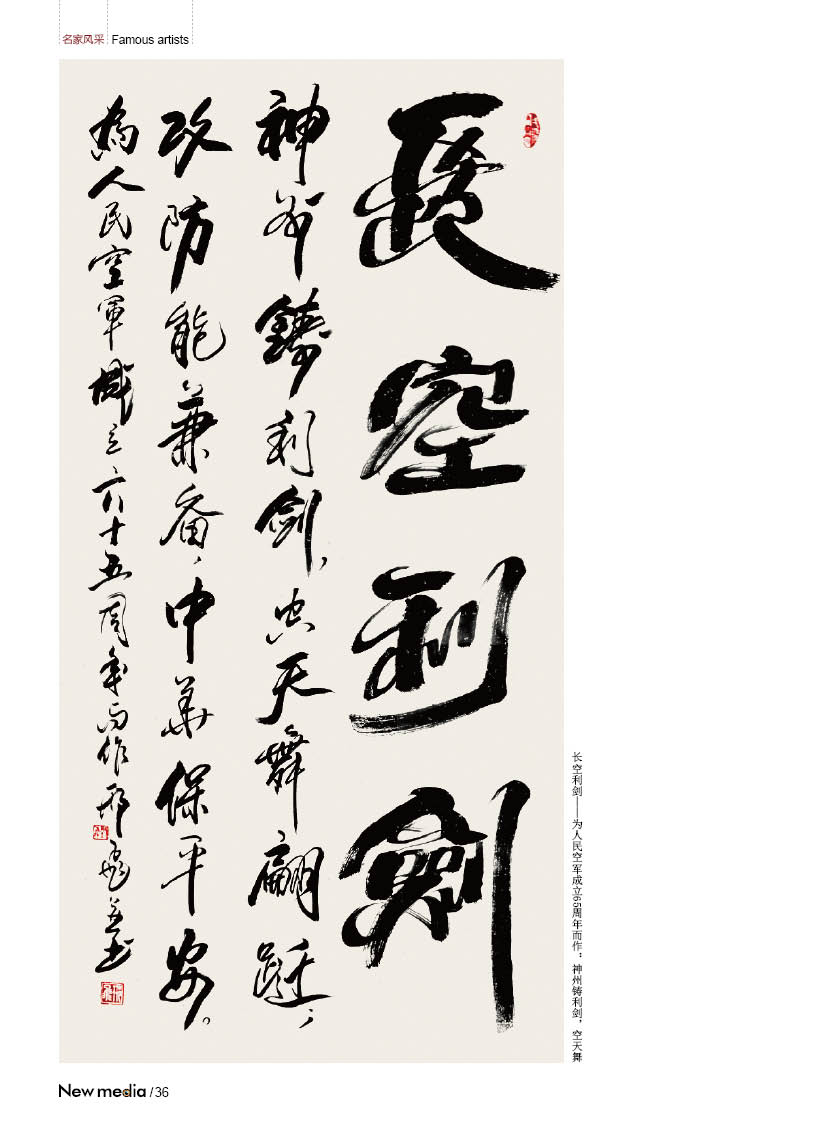 名家风采 Famous artists
長空利劍
神州鑄利劍，空天舞翩跹；
攻防能兼備，中華保平安。
為人民空軍成立六十五周年而作 邢飛并書
长空利剑——为人民空军成立65周年而作：神州铸利剑，空天舞
New media /36